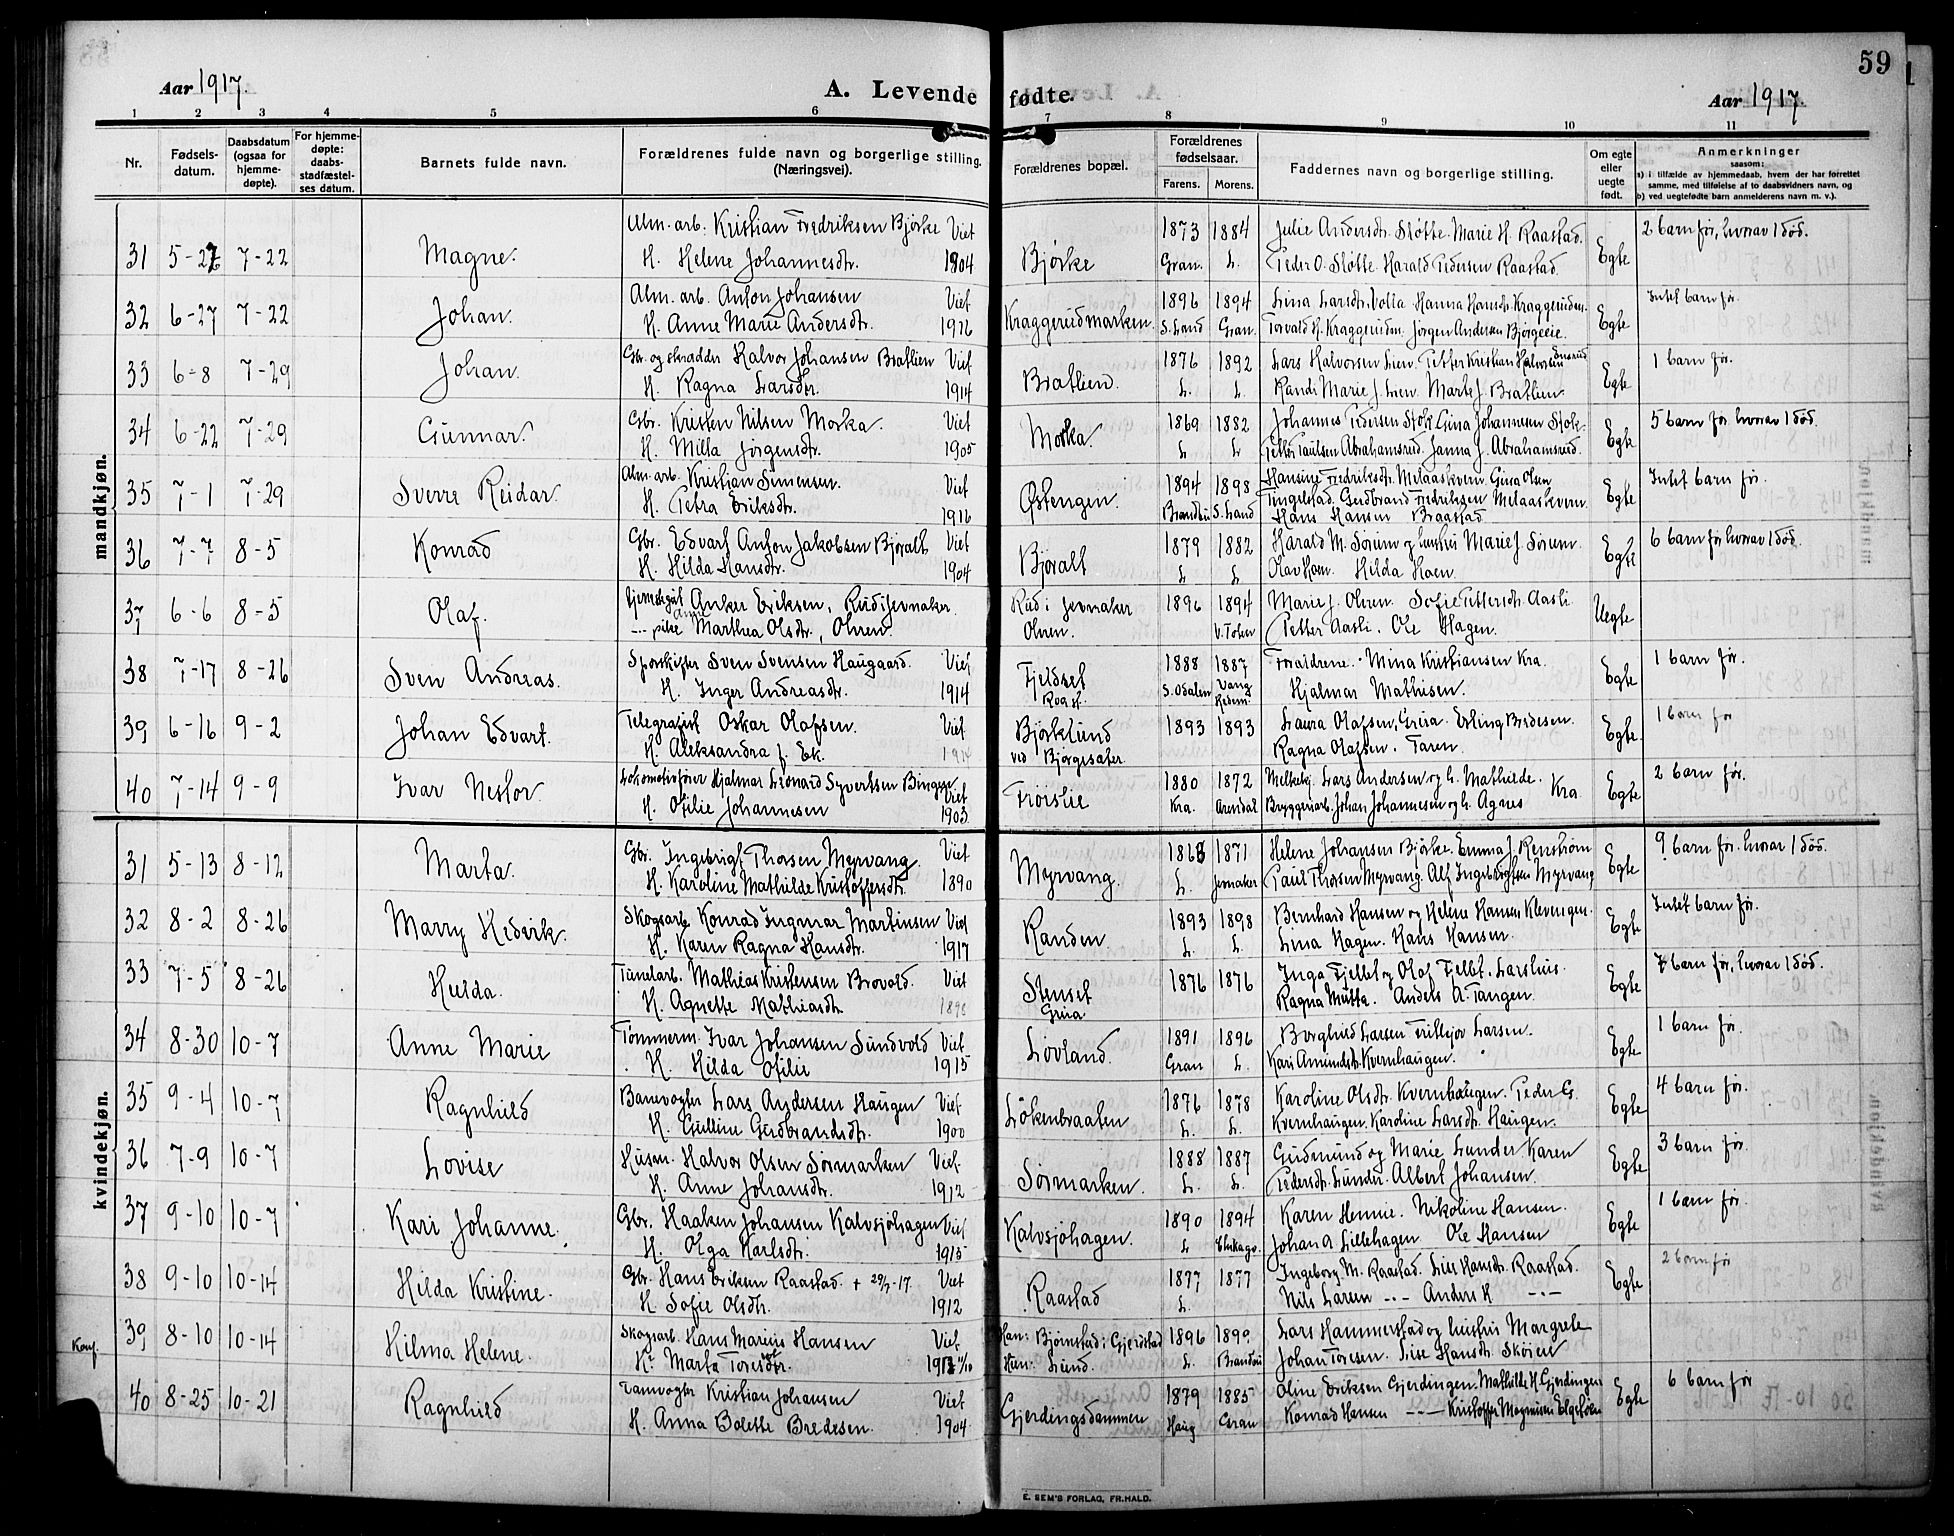 59
Aar 1917.
A. Levende fødte.
Aar 1917
1 2 3 4 5 6 7 8 9 10 11
Nr. Fødsels-datum. Daabsdatum (ogsaa for hjemme-døpte). For hjemme-døpte: daabs-stadfæstel-ses datum. Barnets fulde navn. Forældrenes fulde navn og borgerlige stilling. (Næringsvei). Forældrenes bopæl. Forældrenes fødselsaar. Farens. Morens. Faddernes navn og borgerlige stilling. Om egte eller uegte født. Anmerkninger saasom: a) i tilfælde av hjemmedaab, hvem der har forrettet samme, med tilføielse af to daabsvidners navn, og b) ved uegtefødte barn anmelderens navn m. v.).
mandkjøn.
Alm. arb. Kristian Fredriksen Bjørke Viet 1873 1884 Julie Andersdr. Sløtte. Marie H. Raastad. 2 barn før, hvorav 1 død.
31 5-27 7-22 Magne. H. Helene Johannesdtr. 1904 Bjørke Gran. L. Peder O. Sløtte. Harald Pedersen Raastad. Egte
Alm. arb. Anton Johansen Viet 1896 1894 Lina Larsdtr. Volla Hanna Hansdtr. Kraggerudem. Intet barn før.
32 6-27 7-22 Johan. H. Anne Marie Andersdtr. 1916 Kraggerudmarken. S. Land Gran. Torvald H. Kraggeruden. Jørgen Andersen Bjørgeeie. Egte
Gbr. og skrædder Halvor Johansen Bratlien Viet 1876 1892 Lars Halvorsen Lien. Petter Kristian Halvorsen 1 barn før.
33 6-8 7-29 Johan. H. Ragna Larsdtr. 1914 Bratlien. L. L. Randi Marie J. Lien. Marte J. Bratlien. Egte
Gbr. Kristen Nilsen Morka. Viet 1869 1882 Johannes Pedersen Stok. Gina Johannesen Stok. 5 barn før hvorav 1 død.
34 6-22 7-29 Gunnar. H. Milla Jørgensdtr. 1905 Morka. L L Petter Paulsen Abrahamsrud. Janna J. Abrahamsrud. Egte
Alm. arb. Kristian Simensen. Viet 1894 1898 Hansine Fredriksdtr. Melaaskvern. Gina Olsen Intet barn før.
35 7-1 7-29 Sverre Reidar. H. Petra Eriksdtr. 1916 Østengen. Brandbu S. Land Tingelstad. Gudbrand Fredriksen Melaaskvern. Egte
Hans Hansen Braastad.
Gbr. Edvart Anton Jakobsen Bjøralt Viet 1879 1882 Harald M. Sørum og hustru Marie J. Sørum. 6 barn før hvorav 1 død.
36 7-7 8-5 Konrad H. Hilda Hansdtr. 1904 Bjøralt L L Olav Haen. Hilda Haen. Egte
Anker Eriksen, Rud i Jevnaker. Rud i Jevnaker 1896 1894 Marie J. Ohren. Sofie Pettersdtr. Aasli
37 6-6 8-5 Olaf. -- pike Anne Marthea Olsdtr., Ohren. Ohren. V. Toten Petter Aasli. Ole Hagen. Uegte
Sporskifter Sven Svensen Haugaard. Viet 1888 1887 Forældrene. Mina Kristiansen Kra. 1 barn før.
38 7-17 8-26 Sven Andreas. H. Inger Andreasdtr. 1914 Fjeldset Roa st. S. Odalen Vang Hedem. Hjalmar Mathisen. Egte
Telegrafist Oskar Olafsen. Viet 1893 1893 Laura Olafsen, Grua. Erling Bredesen. 1 barn før
39 6-16 9-2 Johan Edvart. H. Aleksandra f. Ek. Bjørklund ved Bjørgesæter. Ragna Olafsen. Taren. Egte.
Lokomotivfører Hjalmar Leonard Syvertsen Bingen Viet 1880 1872 Lars Andersen og h. Mathilde. Kra. 2 barn før.
40 7-14 9-9 Ivar Nestor. H. Otilie Johannesen 1903. Frøislie Kra. Arendal Bryggeriarb. Johan Johannesen og h. Agnes Egte
kvindekjøn.
Gbr. Ingebrigt Thorsen Myrvang Viet 1868 1871 Helene Johansen Bjørke. Emma J. Renstrøm 9 barn før. hvorav 1 død.
31 5-13 8-12 Marta. H. Karoline Mathilde Kristoffersdtr. 1890 Myrvang. L. Jevnaker Paul Thorsen Myrvang. Alf Ingebrigtsen Myrvang Egte
Skogsarb. Konrad Ingmar Martinsen Viet 1893 1898 Bernhard Hansen og Helene Hansen Klevengen. Intet barn før.
32 8-2 8-26 Marry Hedvik. H. Karen Ragna Hansdtr. 1917 Randen. L. L. Lina Hagen. Hans Hansen. Egte
Tunelarb. Mathias Kristensen Brovold. Viet 1876 1876 Inga Fjellet og Olaf Fjellet. Larshus. 7 barn før, hvorav 1 død.
33 7-5 8-26 Hulda. H. Agnette Mathiasdtr. Stenset Grua Ragna Mutta. Anders A. Tangen. Egte
Tømmerm. Ivar Johansen Sundvold Viet 1891 1896 Borghild Larsen Frithjov Larsen. 1 barn før.
34 8-30 10-7 Anne Marie H. Hilda Otilie 1915 Lovland. Gran L. Kari Amundsdtr. Kvernhaugen. Egte
Banevogter Lars Andersen Haugen Viet. 1876 1878 Karoline Olsdtr. Kvernhaugen. Peder G. 4 barn før.
35 9-4 10-7 Ragnhild H. Gulline Gudbrandsdtr. 1900 Løkenbraaten L. L. Kvernhaugen. Karoline Larsdtr. Haugen. Egte
Husm. Halvor Olsen Sørmarken Viet. 1888 1887 Gudmund og Marie Lunder. Karen 3 barn før.
36 7-9 10-7 Lovise H. Anne Johansdtr. 1912 Sørmarken. L. L. Pedersdtr. Lunder. Albert Johansen. Egte
Gbr. Haaken Johansen Kalvsjøhagen Viet 1890 1894 Karen Hennie. Nikoline Hansen. 1 barn før.
37 9-10 10-7 Kari Johanne. H. Olga Karlsdtr. 1915 Kalvsjøhagen. L Chikago. Johan A. Lillehagen Ole Hansen Egte
Gbr. Hans Eriksen Raastad + 29/7-17. Viet 1877 1877 Ingeborg M. Raastad. Lies Hansdtr. Raastad. 2 barn før
38 9-10 10-14 Hilda Kristine. H Sofie Olsdtr. 1912 Raastad L. Nils Larsen -"- Anders K -"- Egte
Skogsarb. Hans Marius Hansen Viet Han: Bjørnstad i Gjerdstad 1896 1899. Lars Hammerstad og hustru Margrete
Konf. 39 8-10 10-14 Hilma Helene. H. Marta Toresdtr. Hun: Lund. L. Brandbu Johan Toresen. Lise Hansdtr. Skøien
Kristian Johansen Viet 1879 1885 Oline Eriksen Gjerdingen. Mathilde H. Gjerdingen 6 barn før
40 8-25 10-21 Ragnhild H. Anna Bolette Bredesen. 1904 Gjerdingsdammen Haug Gran. Konrad Hansen -"- Kristoffer Magnusen Elgstøen Egte
E. SEM'S FORLAG, FR.HALD.